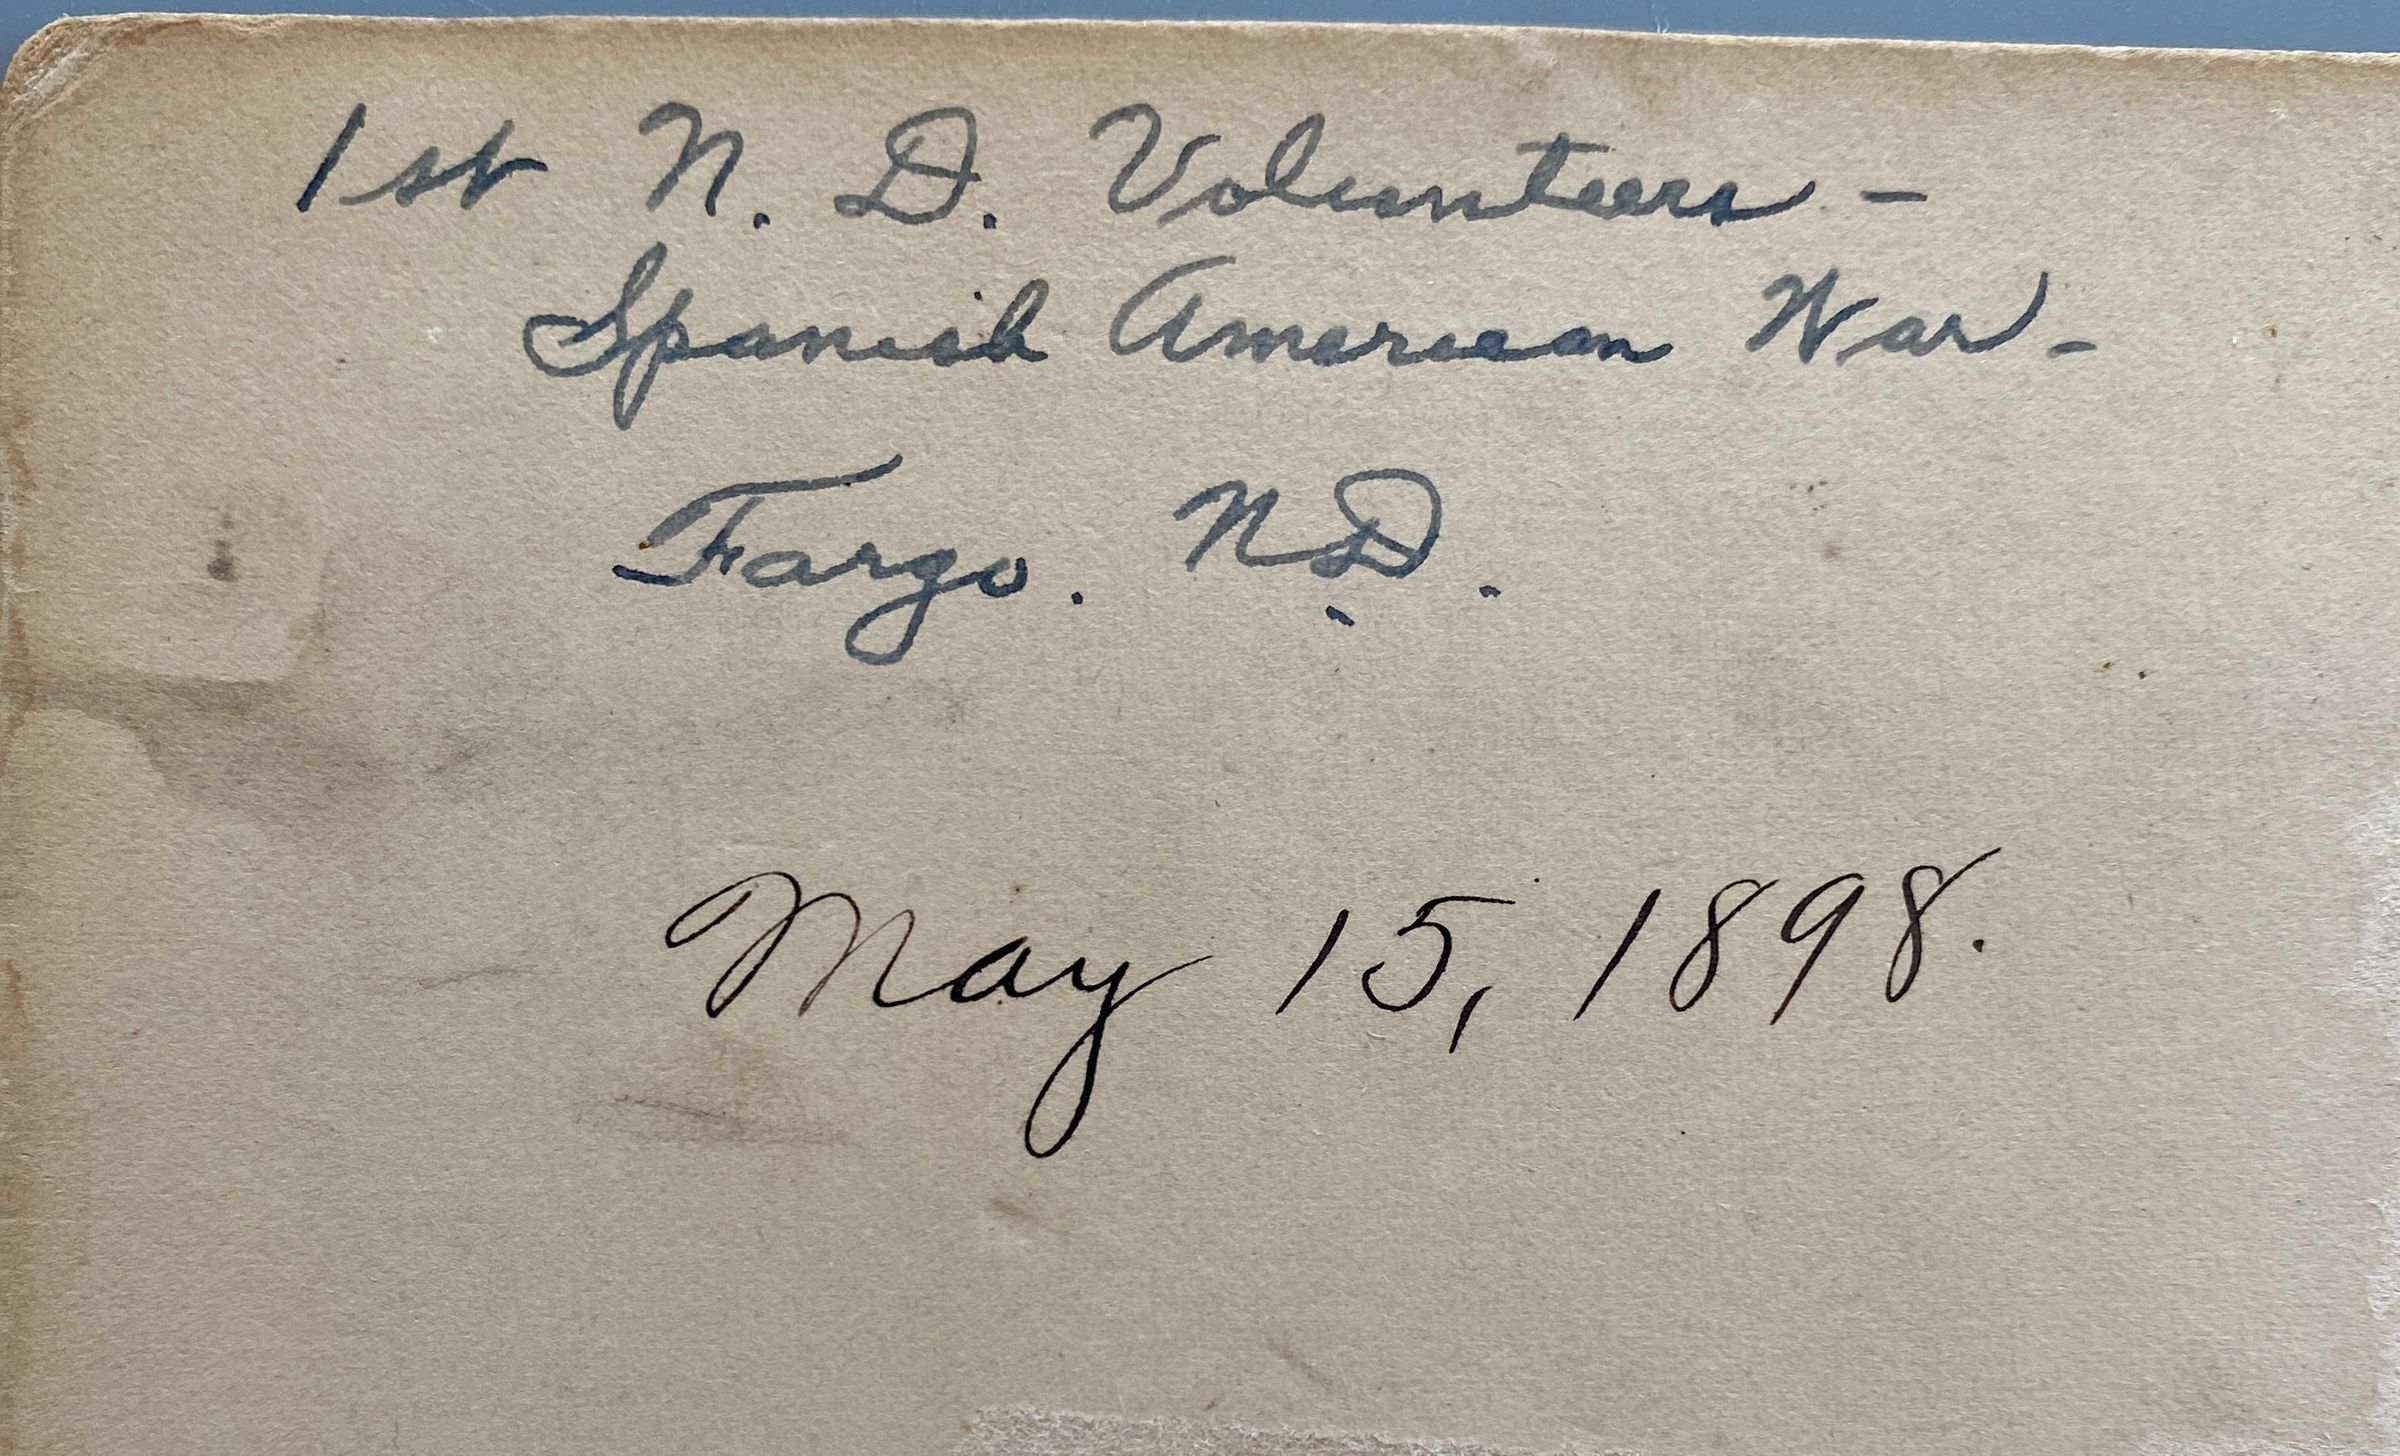 1st N. D. Volunteers -
Spanish American War -
Fargo. N.D.
May 15, 1898.